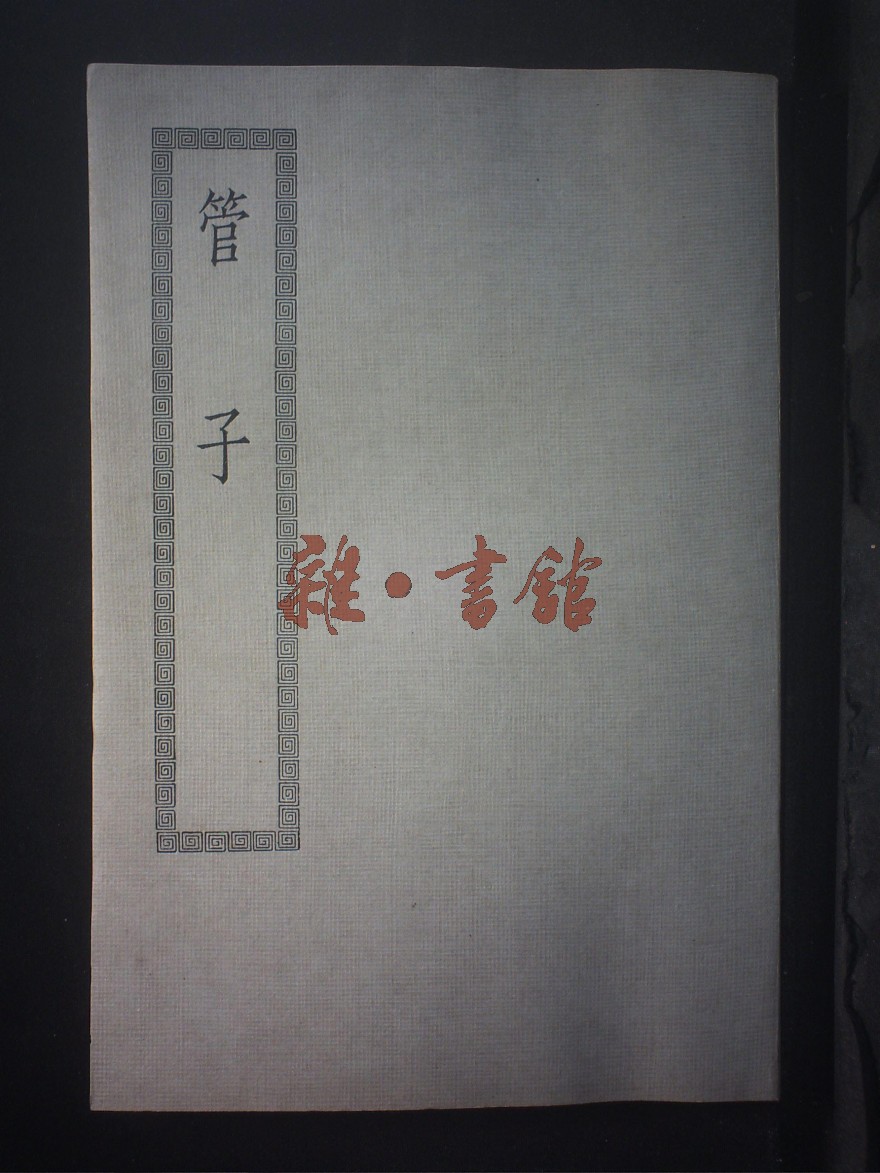 管子
雜·書館